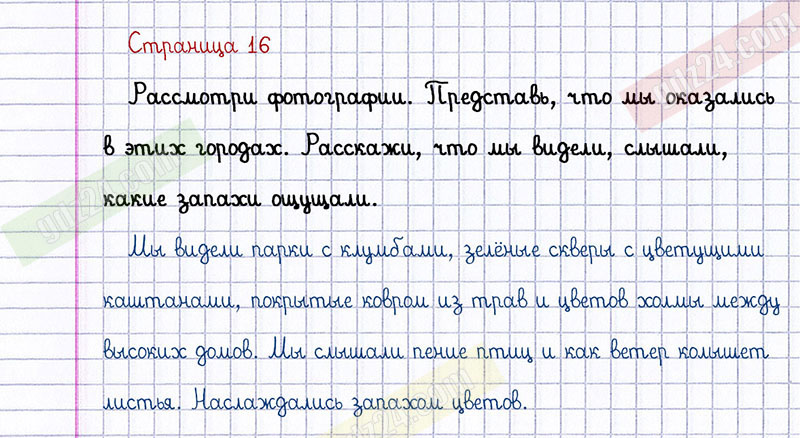 Страница 16
Рассмотри фотографии. Представь, что мы оказались
в этих городах. Расскажи, что мы видели, слышали,
какие запахи ощущали.
Мы видели парки с клумбами, зелёные скверы с цветущими
каштанами, покрытые ковром из трав и цветов холмы между
высоких домов. Мы слышали пение птиц и как ветер колышет
листья. Наслаждались запахом цветов.
gdz24.com
gdz24.com
gdz24.com